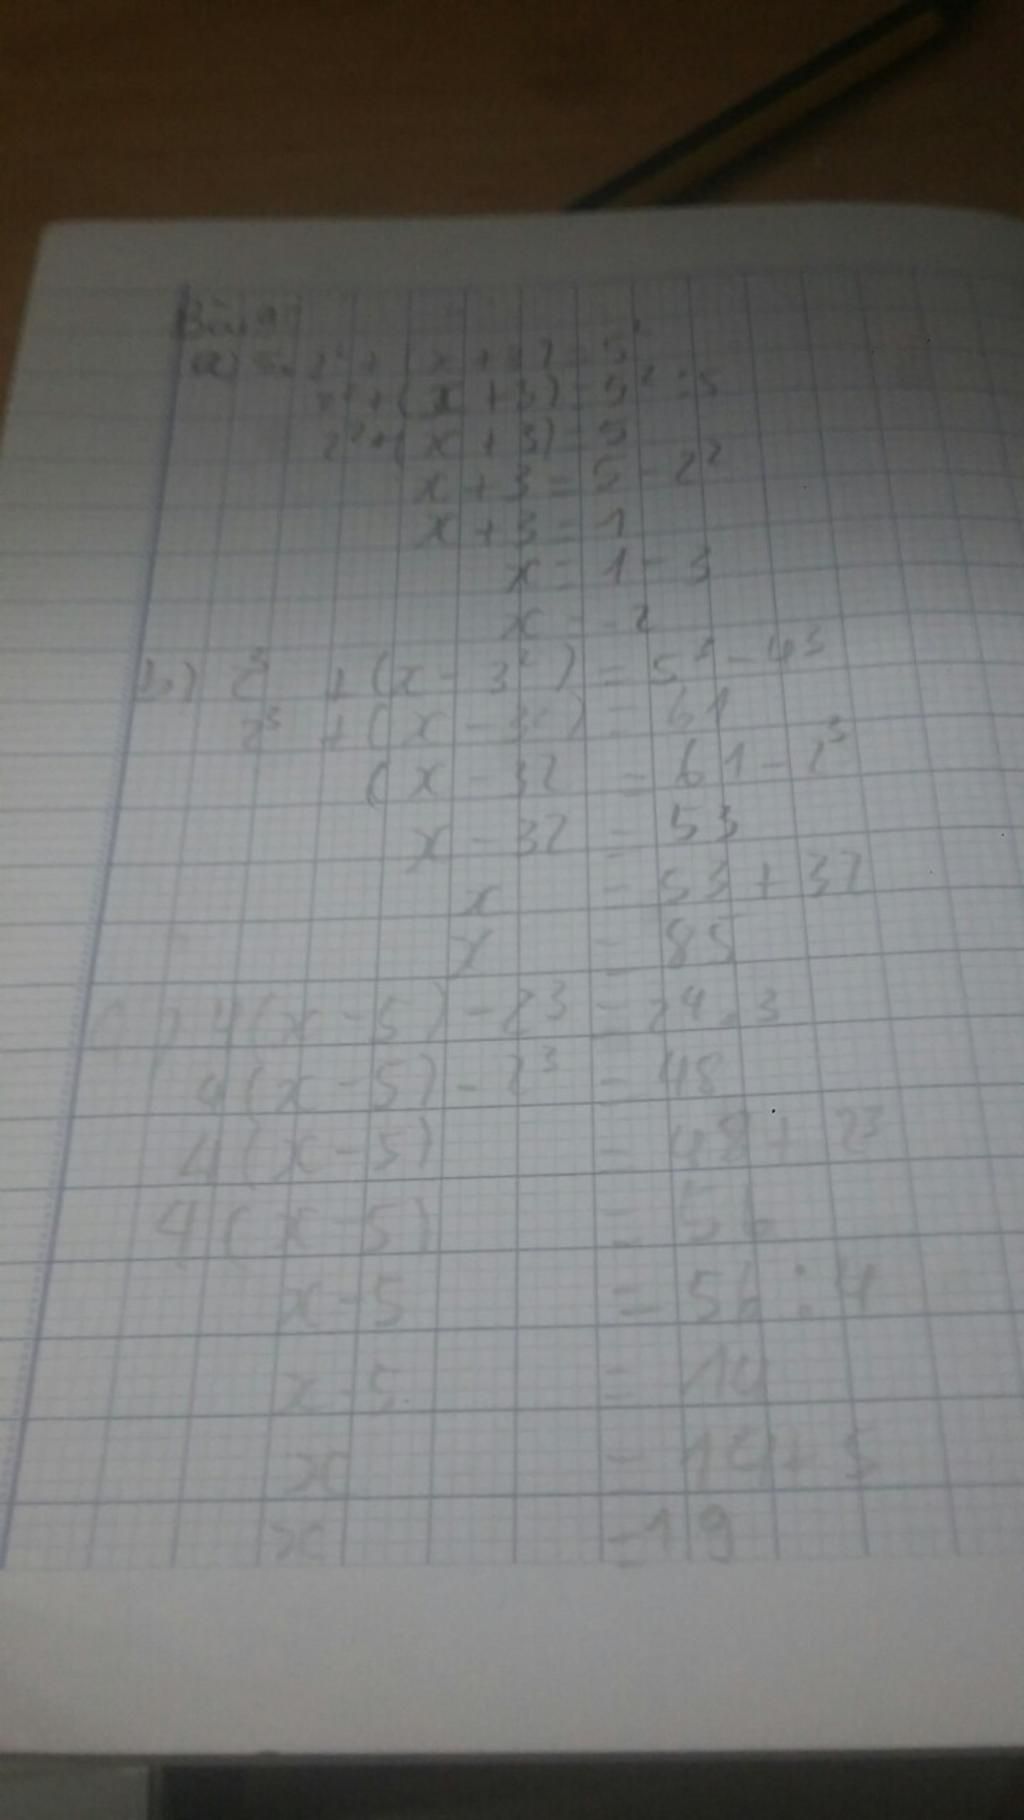 Bài 9
a) 5. 2² + (x + 3) = 5²
2² + (x + 3) = 5² : 5
2² + (x + 3) = 5
x + 3 = 5 - 2²
x + 3 = 1
x = 1 - 3
x = -2
b) 2³ + (x - 3²) = 5³ - 4³
2³ + (x - 3²) = 61
(x - 32 = 61 - 2³
x - 32 = 53
x = 53 + 32
x = 85
c) 4(x - 5) - 2³ = 2⁴.3
4(x - 5) - 2³ = 48
4(x - 5) = 48 + 2³
4(x - 5) = 56
x - 5 = 56 : 4
x - 5 = 14
x = 14 + 5
x = 19